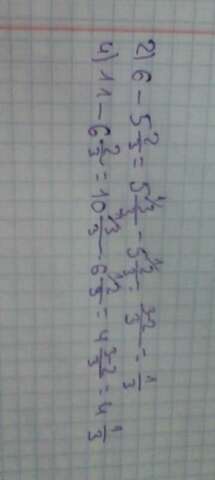 2) 6 - 5 2/3 = 5 3/3 - 5 2/3 = (3-2)/3 = 1/3
4) 11 - 6 2/3 = 10 3/3 - 6 2/3 = 4 (3-2)/3 = 4 1/3